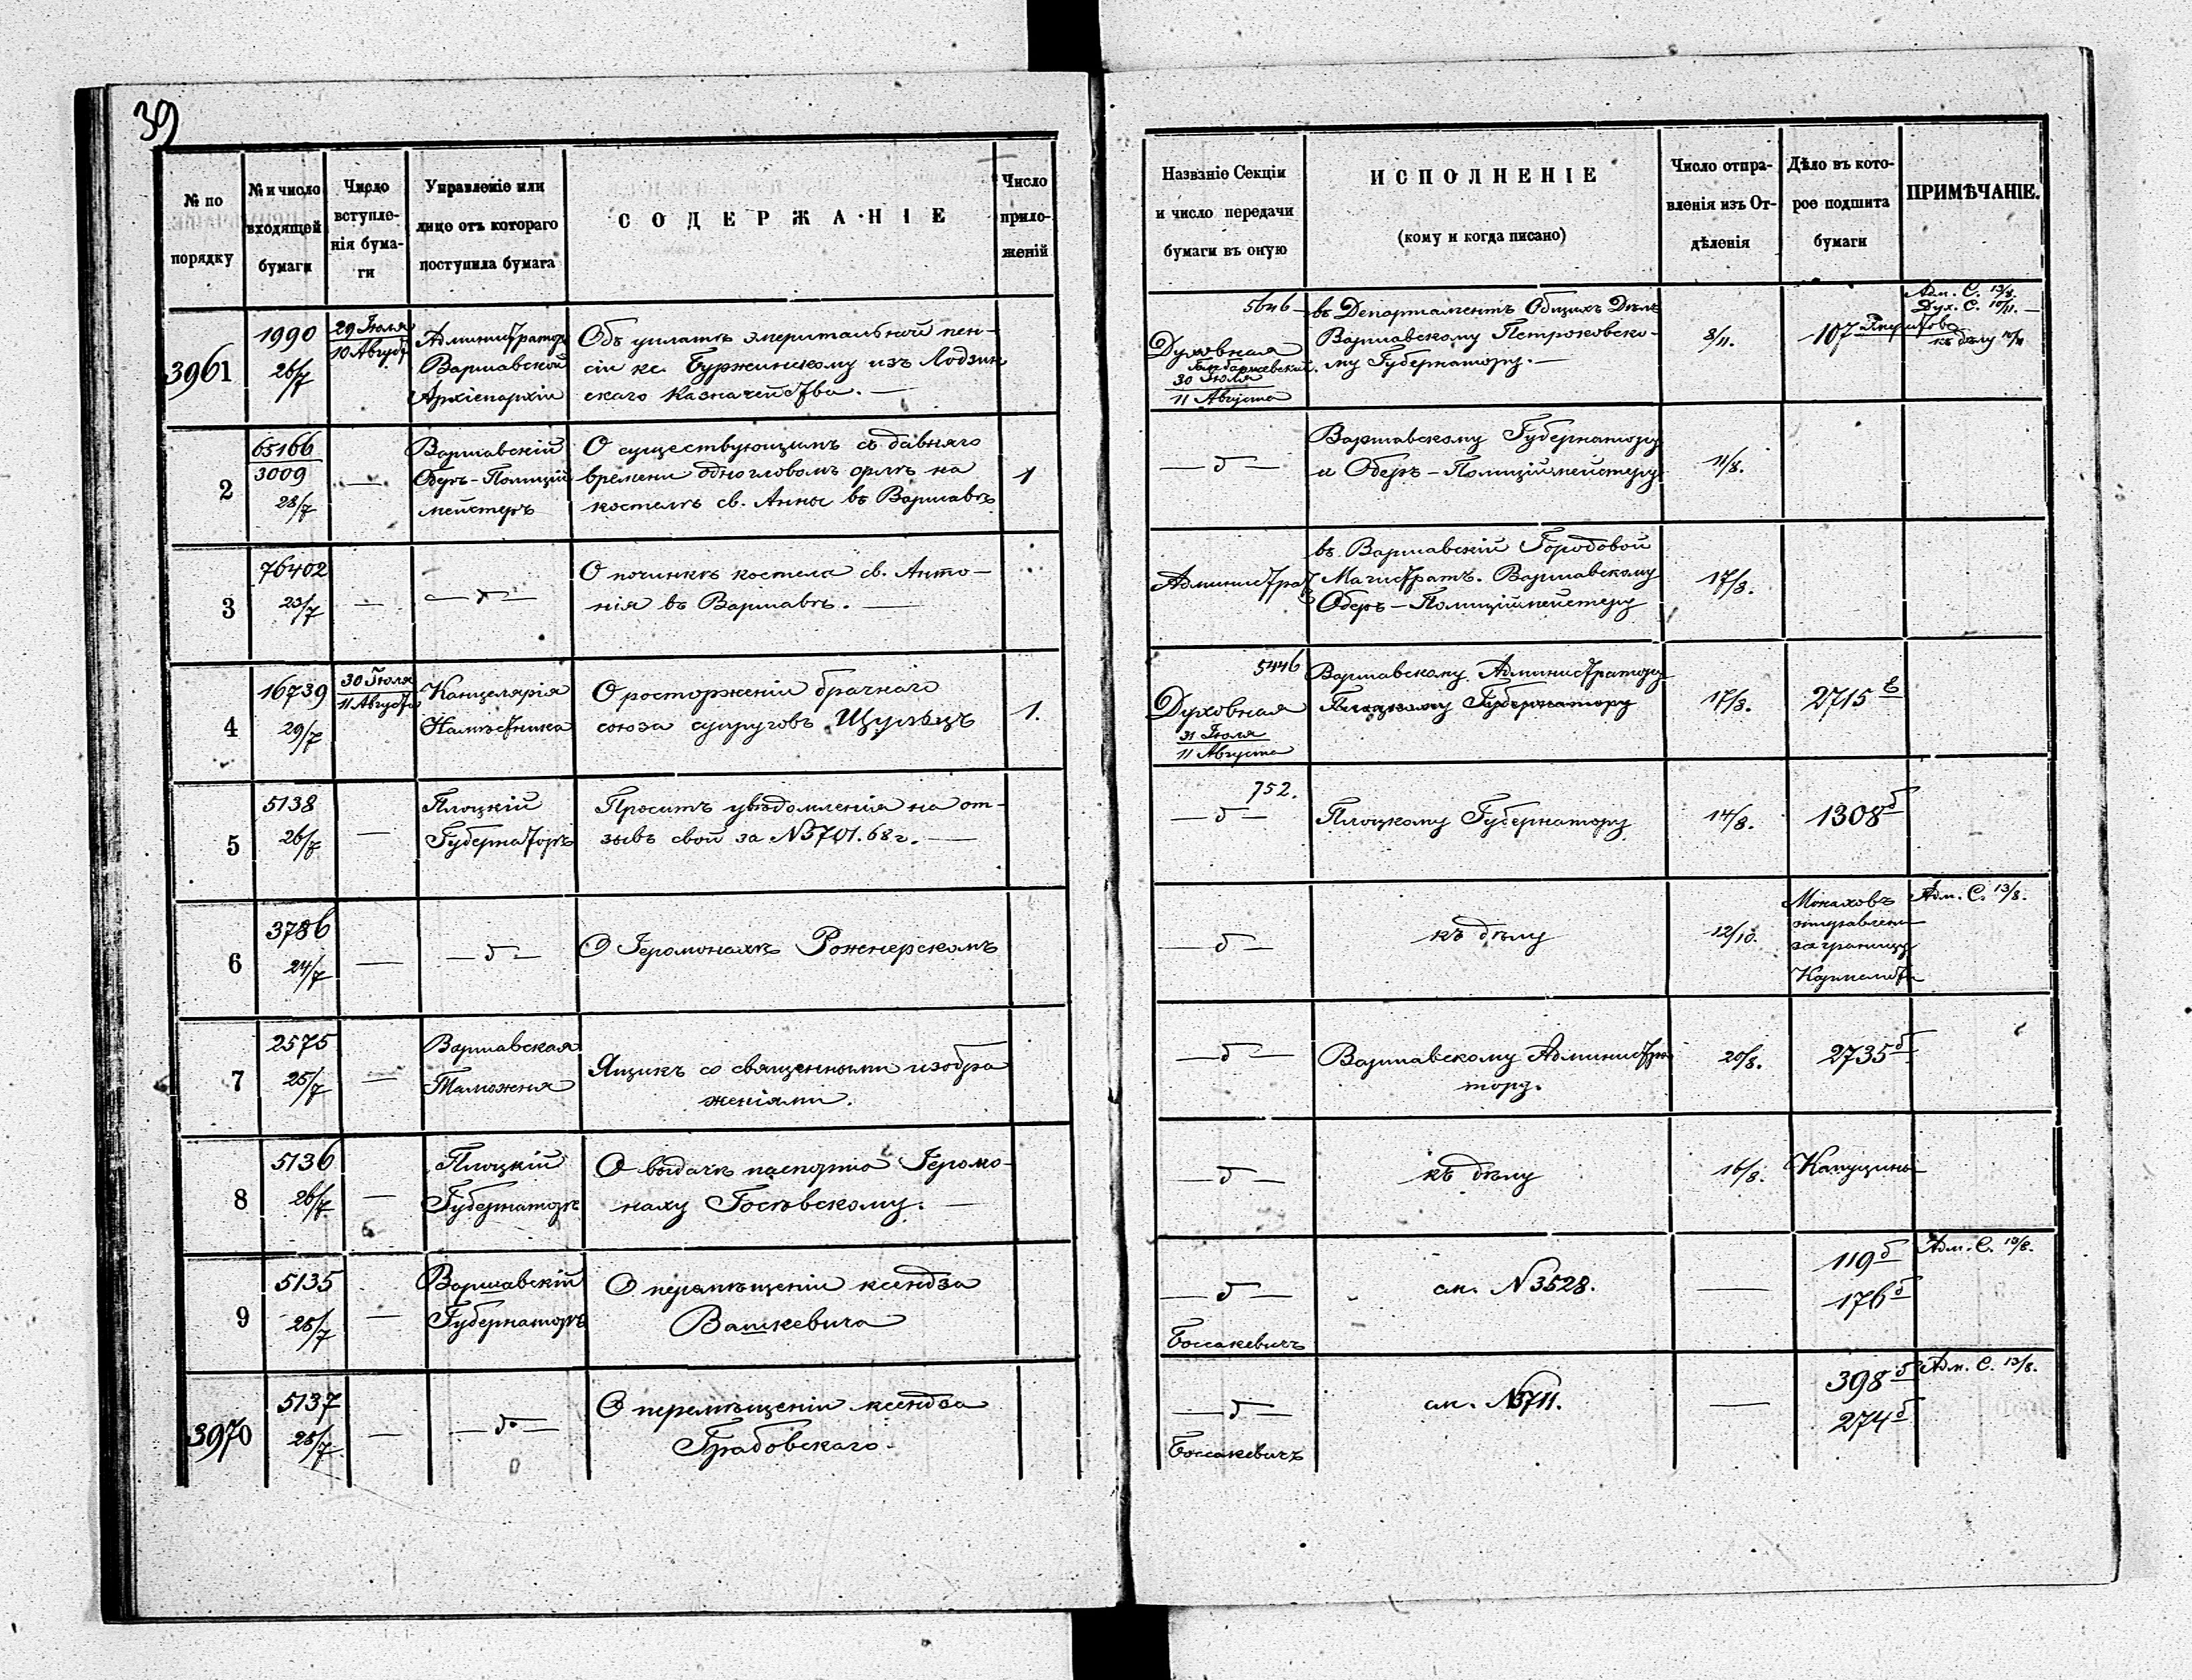 39
№ по порядку
№ и число входящей бумаги
Число вступле-нія бума-ги
Управленіе или лице отъ котораго поступила бумага
СОДЕРЖАНІЕ
Число прило-женій
Названіе Секціи и число передачи бумаги въ оную
ИСПОЛНЕНІЕ
(кому и когда писано)
Число отпра-вленія изъ От-дѣленія
Дѣло въ кото-рое подшита бумаги
ПРИМѢЧАНІЕ.
3961
1990
26/7
29 Іюля
10 Августа
Администраторъ
Варшавской
Архіепархіи
Объ уплатѣ эмеритальной пен-
сіи кс. Буржинскому изъ Лодзин
скаго Казначейства. —
5646
Духовная
30 Іюля
11 Августа
въ Департаментъ Общихъ Дѣлъ
Варшавскому Петроковско-
му Губернатору. —
8/11.
107
Адм. С. 13/8.
Дух. С. 10/11. —
къ дѣлу
2
65166
3009
28/7
—
Варшавскій
Оберъ-Полицій
мейстеръ
О существующимъ съ давняго
времени одноглавомъ орлѣ на
костелѣ св. Анны въ Варшавѣ
1
— д —
Варшавскому Губернатору
и Оберъ-Полиціймейстеру
11/8.
3
76402
23/7
—
— д —
О починкѣ костела св. Анто-
нія въ Варшавѣ. —
Администрат
въ Варшавскій Городовой
Магистратъ. Варшавскому
Оберъ-Полиціймейстеру
17/8.
4
16739
29/7
30 Іюля
11 Августа
Канцелярія
Намѣстника
О росторженіи брачнаго
союза супруговъ Шульцъ
1.
5446
Духовная
31 Іюля
11 Августа
Варшавскому Администратору
Плоцкому Губернатору
17/8.
2715
5
5138
26/7
—
Плоцкій
Губернаторъ
Проситъ увѣдомленія на от-
зывъ свой за N3701. 68 г. —
752.
— д —
Плоцкому Губернатору
14/8.
1308 б
6
3786
24/7
—
— д —
О Іеромонахѣ Рожнерскомъ
— д —
къ дѣлу
12/10.
Монаховъ
отправлен
за границу
Кармелит
Адм. С. 13/8.
7
2575
25/7
—
Варшавская
Таможня
Ящикъ со священными изобра
женіями.
— д —
Варшавскому Администра
тору.
20/8.
2735 б
8
5136
26/7
—
Плоцкій
Губернаторъ
О выдачѣ паспорта Іеромо-
наху Госѣвскому. —
— д —
къ дѣлу
16/8.
Капуцины
9
5135
25/7
—
Варшавскій
Губернаторъ
О перемѣщеніи ксендза
Вашкевича
— д —
Боссакевичъ
см. N 3528.
—
119 б
176 б
Адм. С. 10/8.
3970
5137
25/7
—
— д —
О перемѣщеніи ксендза
Грабовскаго.
— д —
Боссакевичъ
см. N3711.
—
398 б
274 б
Адм. С. 13/8.